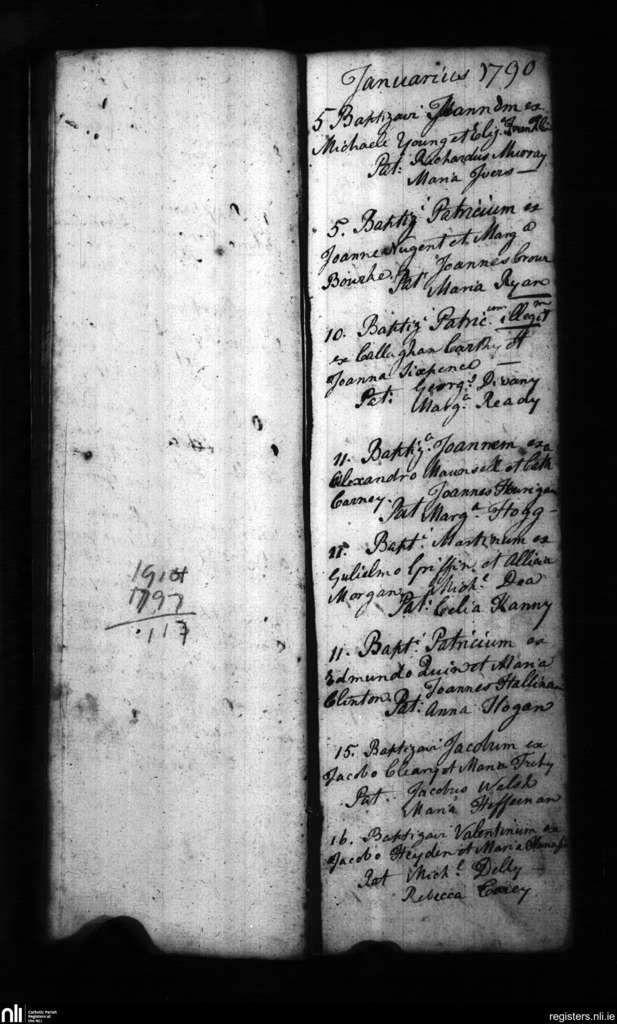 1914
1797
.117
Januarius 1790
5 Baptizavi Joannem ex
Michaele Young et Eliz.
Pat: Richardus Murray
Maria Ivers —
5. Baptiz.i Patricium ex
Joanne Nugent et Marg.a
Bourke. Pat: Joannes
Maria Ryan
10. Baptiz.i Patric.cum illegit.m
ex Callaghan Carthy et
Joanna Sixpence —
Pat: Georg.s Divany
Marg.a Ready
11. Baptiz.a Joannem ex
Alexandro Maunsell et Cath
Carney. Joannes
Pat Marg.a Hogg -
11. Bapt.i Martinum ex
Gulielmo Griffin et
Morgan Mich.l Dea
Pat: Celia Hanny
11. Bapt.i Patricium ex
Edmundo Quin et Maria
Clinton. Joannes Hallinan
Pat: Anna Hogan
15. Baptizavi Jacobum ex
Jacobo Cleary et Maria
Pat. Jacobus Walsh
Maria Heffernan
16. Baptizavi Valentinum ex
Jacobo Heyden et Maria
Pat Mich.l Delly
Rebecca
nli
Catholic Parish
Registers at
the NLI
registers.nli.ie